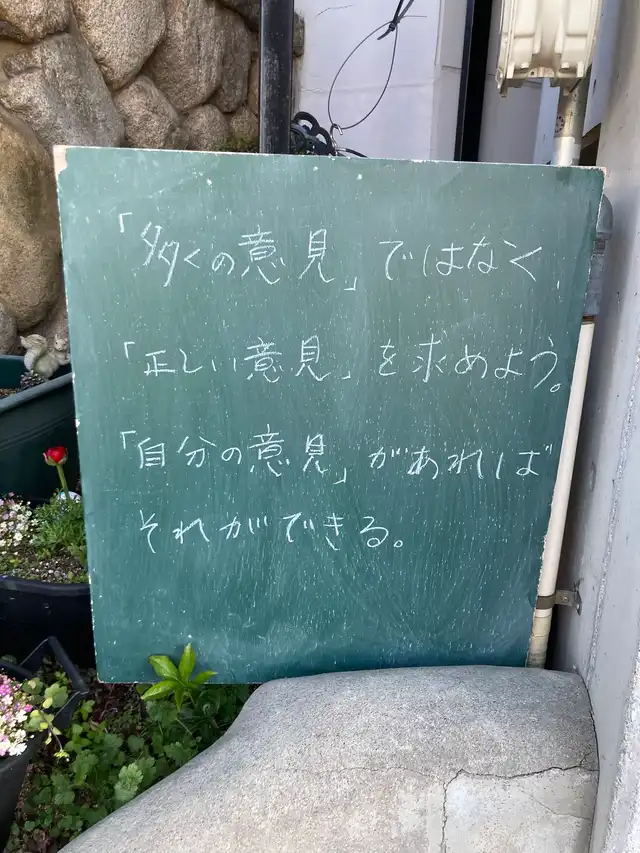 「多くの意見」ではなく
「正しい意見」を求めよう。
「自分の意見」があれば
それができる。